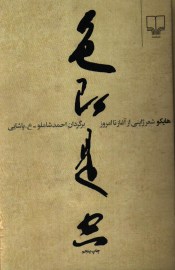 色即是空
هایکو شعر ژاپنی از آغاز تا امروز
برگردان احمد شاملو - ع. پاشایی
چاپ پنجم